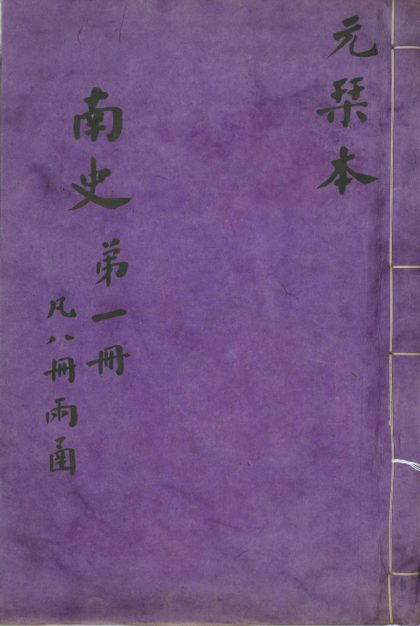 元栞本
南史
第一冊
凡八冊兩函